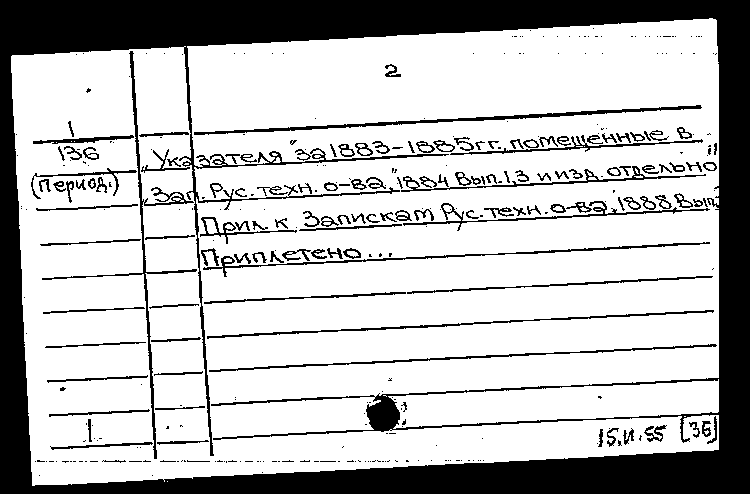 2
1
136
(Период.)
„Указателя" за 1883-1885гг., помещенные в
„Зап. Рус. техн. о-ва," 1884 Вып. 1, 3 и изд. отдельно"
Прил. к Запискам Рус. техн. о-ва, 1888, Вып.
Приплетено...
1
[36]